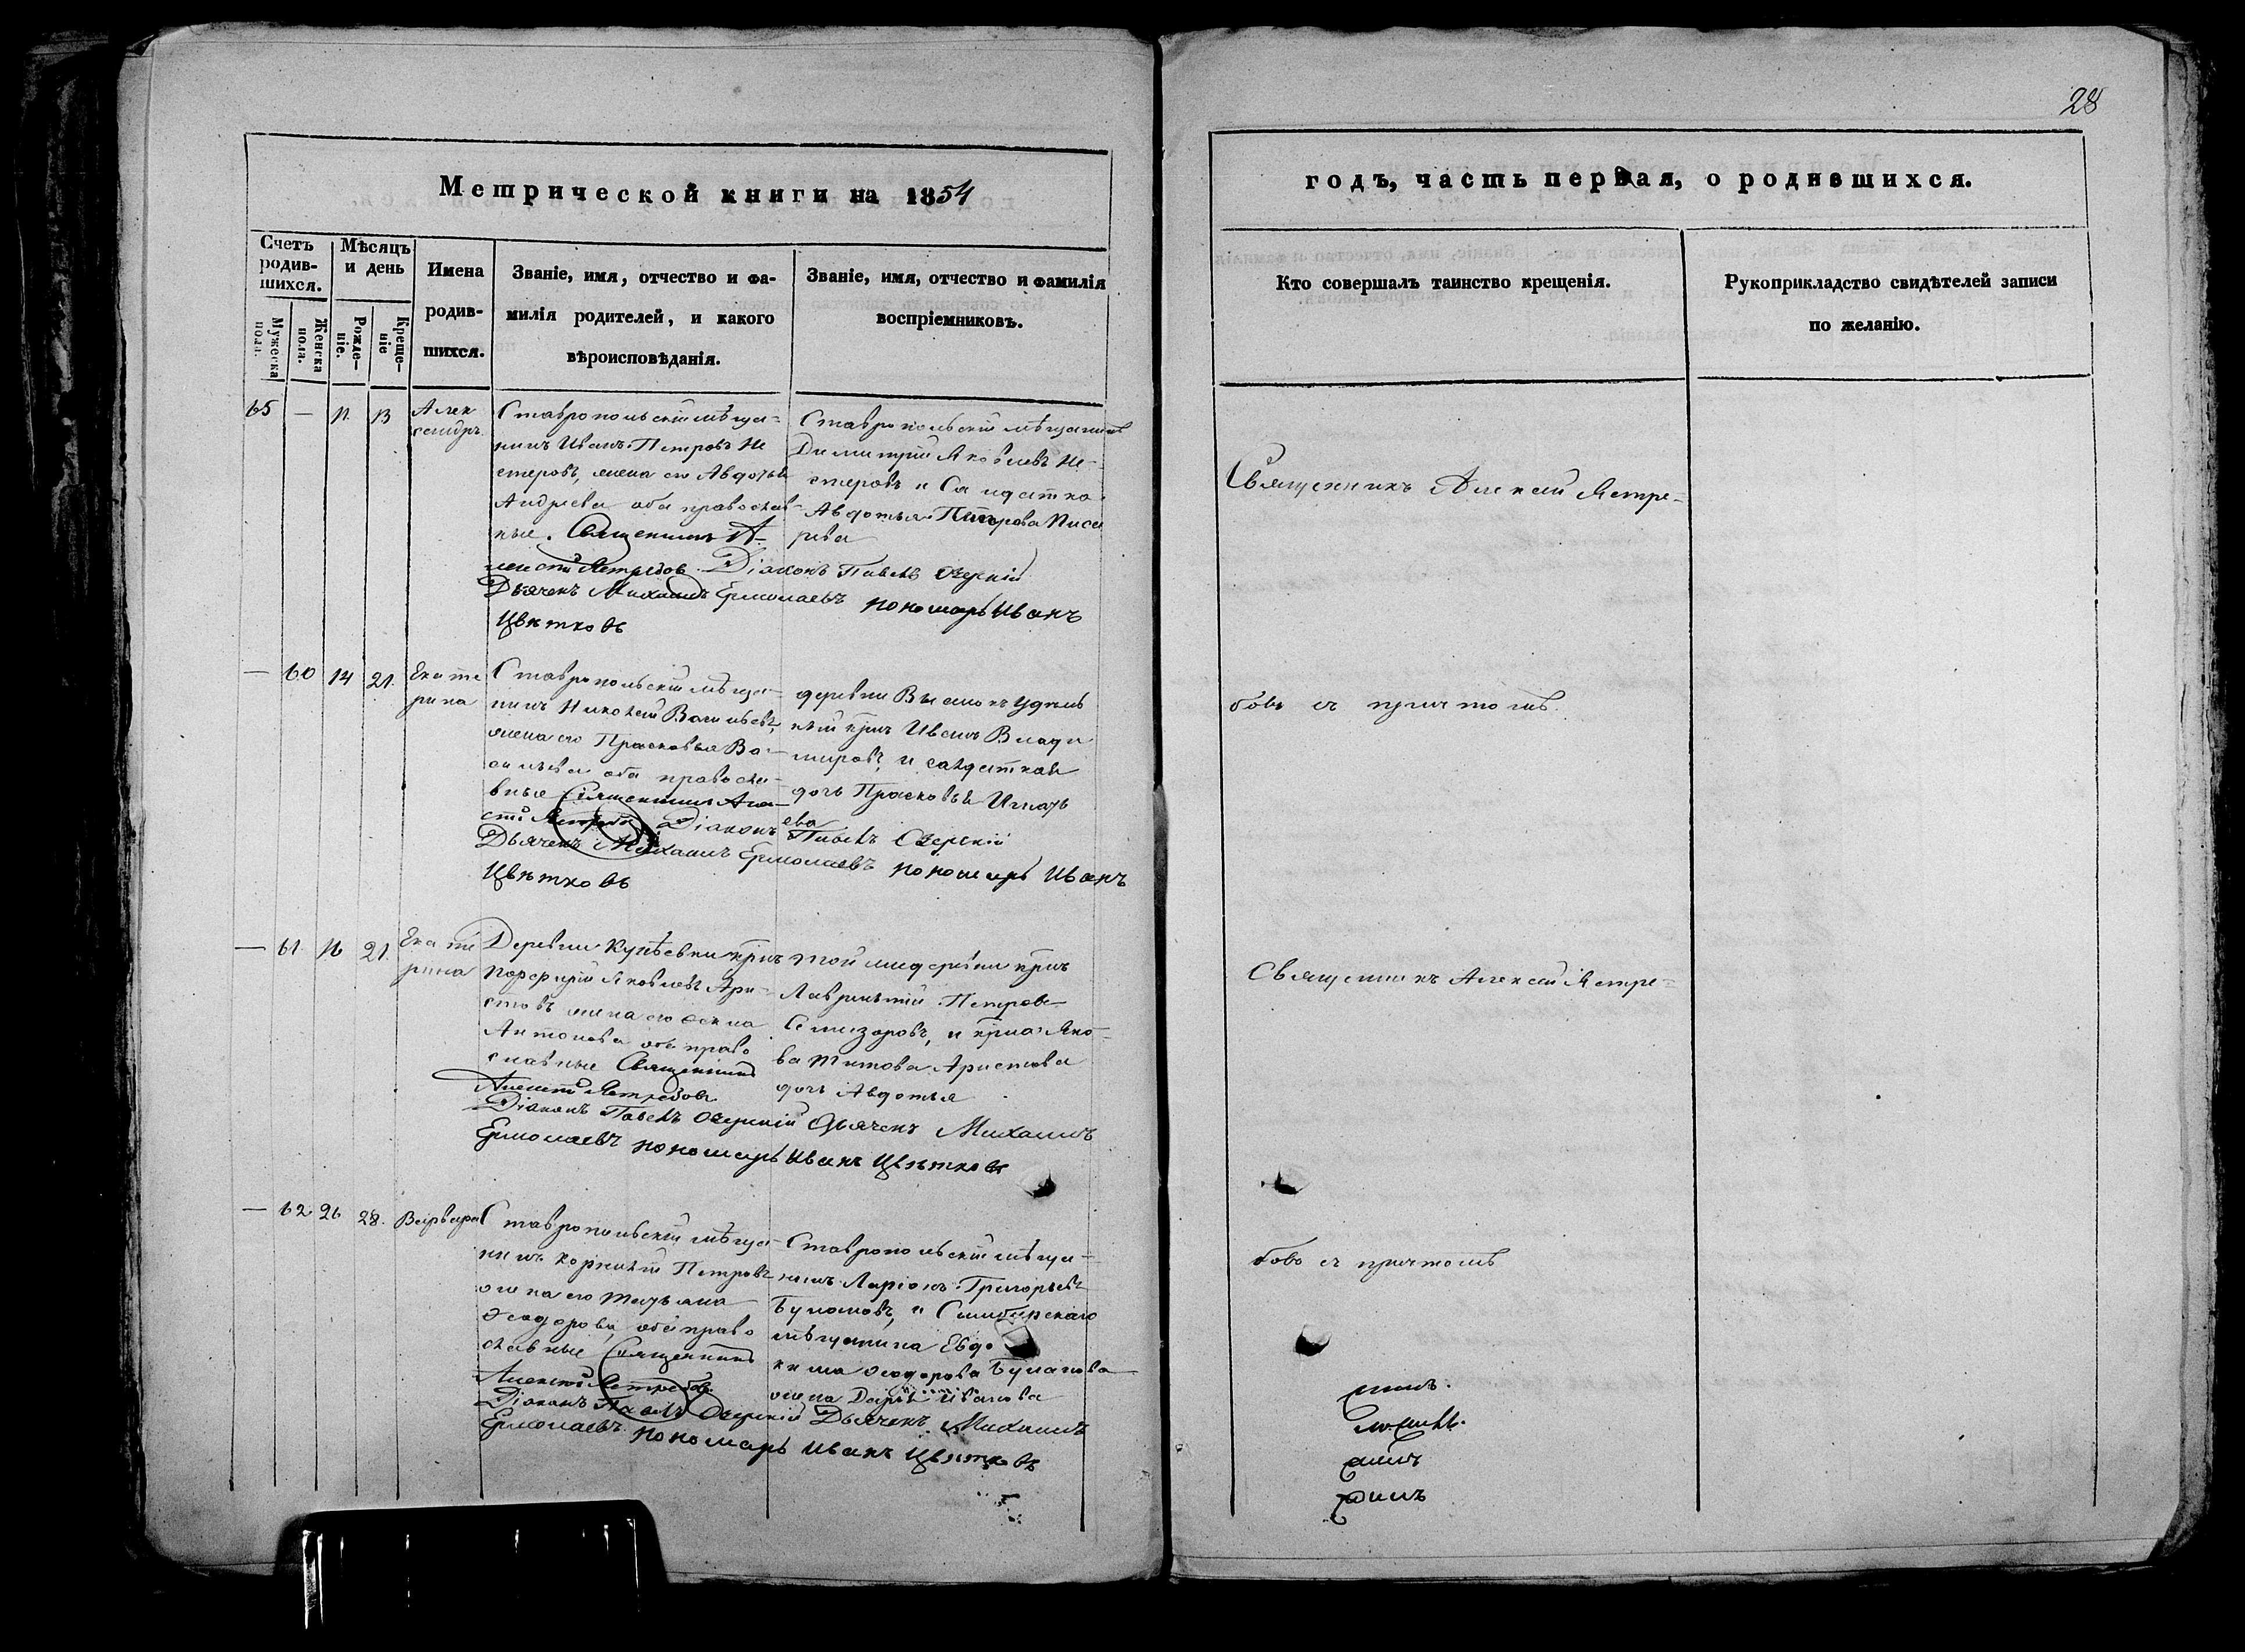 28
Метрической книги на 1854
годъ, часть первая, о родившихся.
Счетъ родив-шихся.
Мужеска пола.
Женска пола.
Мѣсяцъ и день
Рожде-ніе.
Креще-ніе
Имена родив-шихся.
Званіе, имя, отчество и фа-
милія родителей, и какого
вѣроисповѣданія.
Званіе, имя, отчество и фамилія
воспріемниковъ.
Кто совершалъ таинство крещенія.
Рукоприкладство свидѣтелей записи
по желанію.
65 — 11 13
Алек
сандръ
Ставропольскій мѣща-
нинъ Иванъ Петровъ Не
стеровъ, жена его Авдотья
Андреева оба православ-
ные. Священникъ А-
лексѣй Ястребов Діаконъ Павелъ Озерскій
Дьячекъ Михаилъ Ермолаевъ пономарь Иванъ
Цвѣтковъ
Ставропольскій мѣщанинъ
Димитрій Яковлевъ Не-
стеровъ и Салдатка
Авдотья Петрова Писа
рева
Священникъ Алексѣй Ястре-
бовъ съ причтомъ.
— 60 14 21.
Екате
рина
Ставропольскій мѣща-
нинъ Николай Васильевъ,
жена его Прасковья Ва-
сильева оба правосла-
вные Священникъ Але-
ксѣй Ястребов Діаконъ Павелъ Озерскій
Дьячекъ Михаилъ Ермолаевъ пономарь Иванъ
Цвѣтковъ
деревни Выселокъ Удѣль
ный крнъ Иванъ Влади
мировъ, и салдаткая
дочь Прасковья Игнать
ева
— 61. 16 21.
Екате
рина
Деревни Кунѣевки крнъ
Порфирій Яковлевъ Ари-
стовъ жена его
Антонова оба право
славные Священникъ
Алексѣй Ястребовъ
Діаконъ Павелъ Озерскій Дьячекъ Михаилъ
Ермолаевъ пономарь Иванъ Цвѣтковъ
той же деревни крнъ
Лаврентій Петровъ
и крна Яко-
ва Титова Аристова
дочь Авдотья
Священникъ Алексѣй Ястре-
бовъ съ причтомъ
— 62 26 28.
Варвара
Ставропольскій мѣща-
нинъ Корнилій Петровъ
жена его Татьяна
Ѳеодорова, оба право
славные Священникъ
Алексѣй Ястребов
Діаконъ Павелъ Озерскій Дьячекъ Михаилъ
Ермолаевъ пономарь Иванъ Цвѣтковъ
Ставропольскій мѣща-
нинъ Ларіонъ Григорьевъ
и Симбирскаго
мѣщанина Евдо
кима Ѳеодорова
жена Дарья Иванова